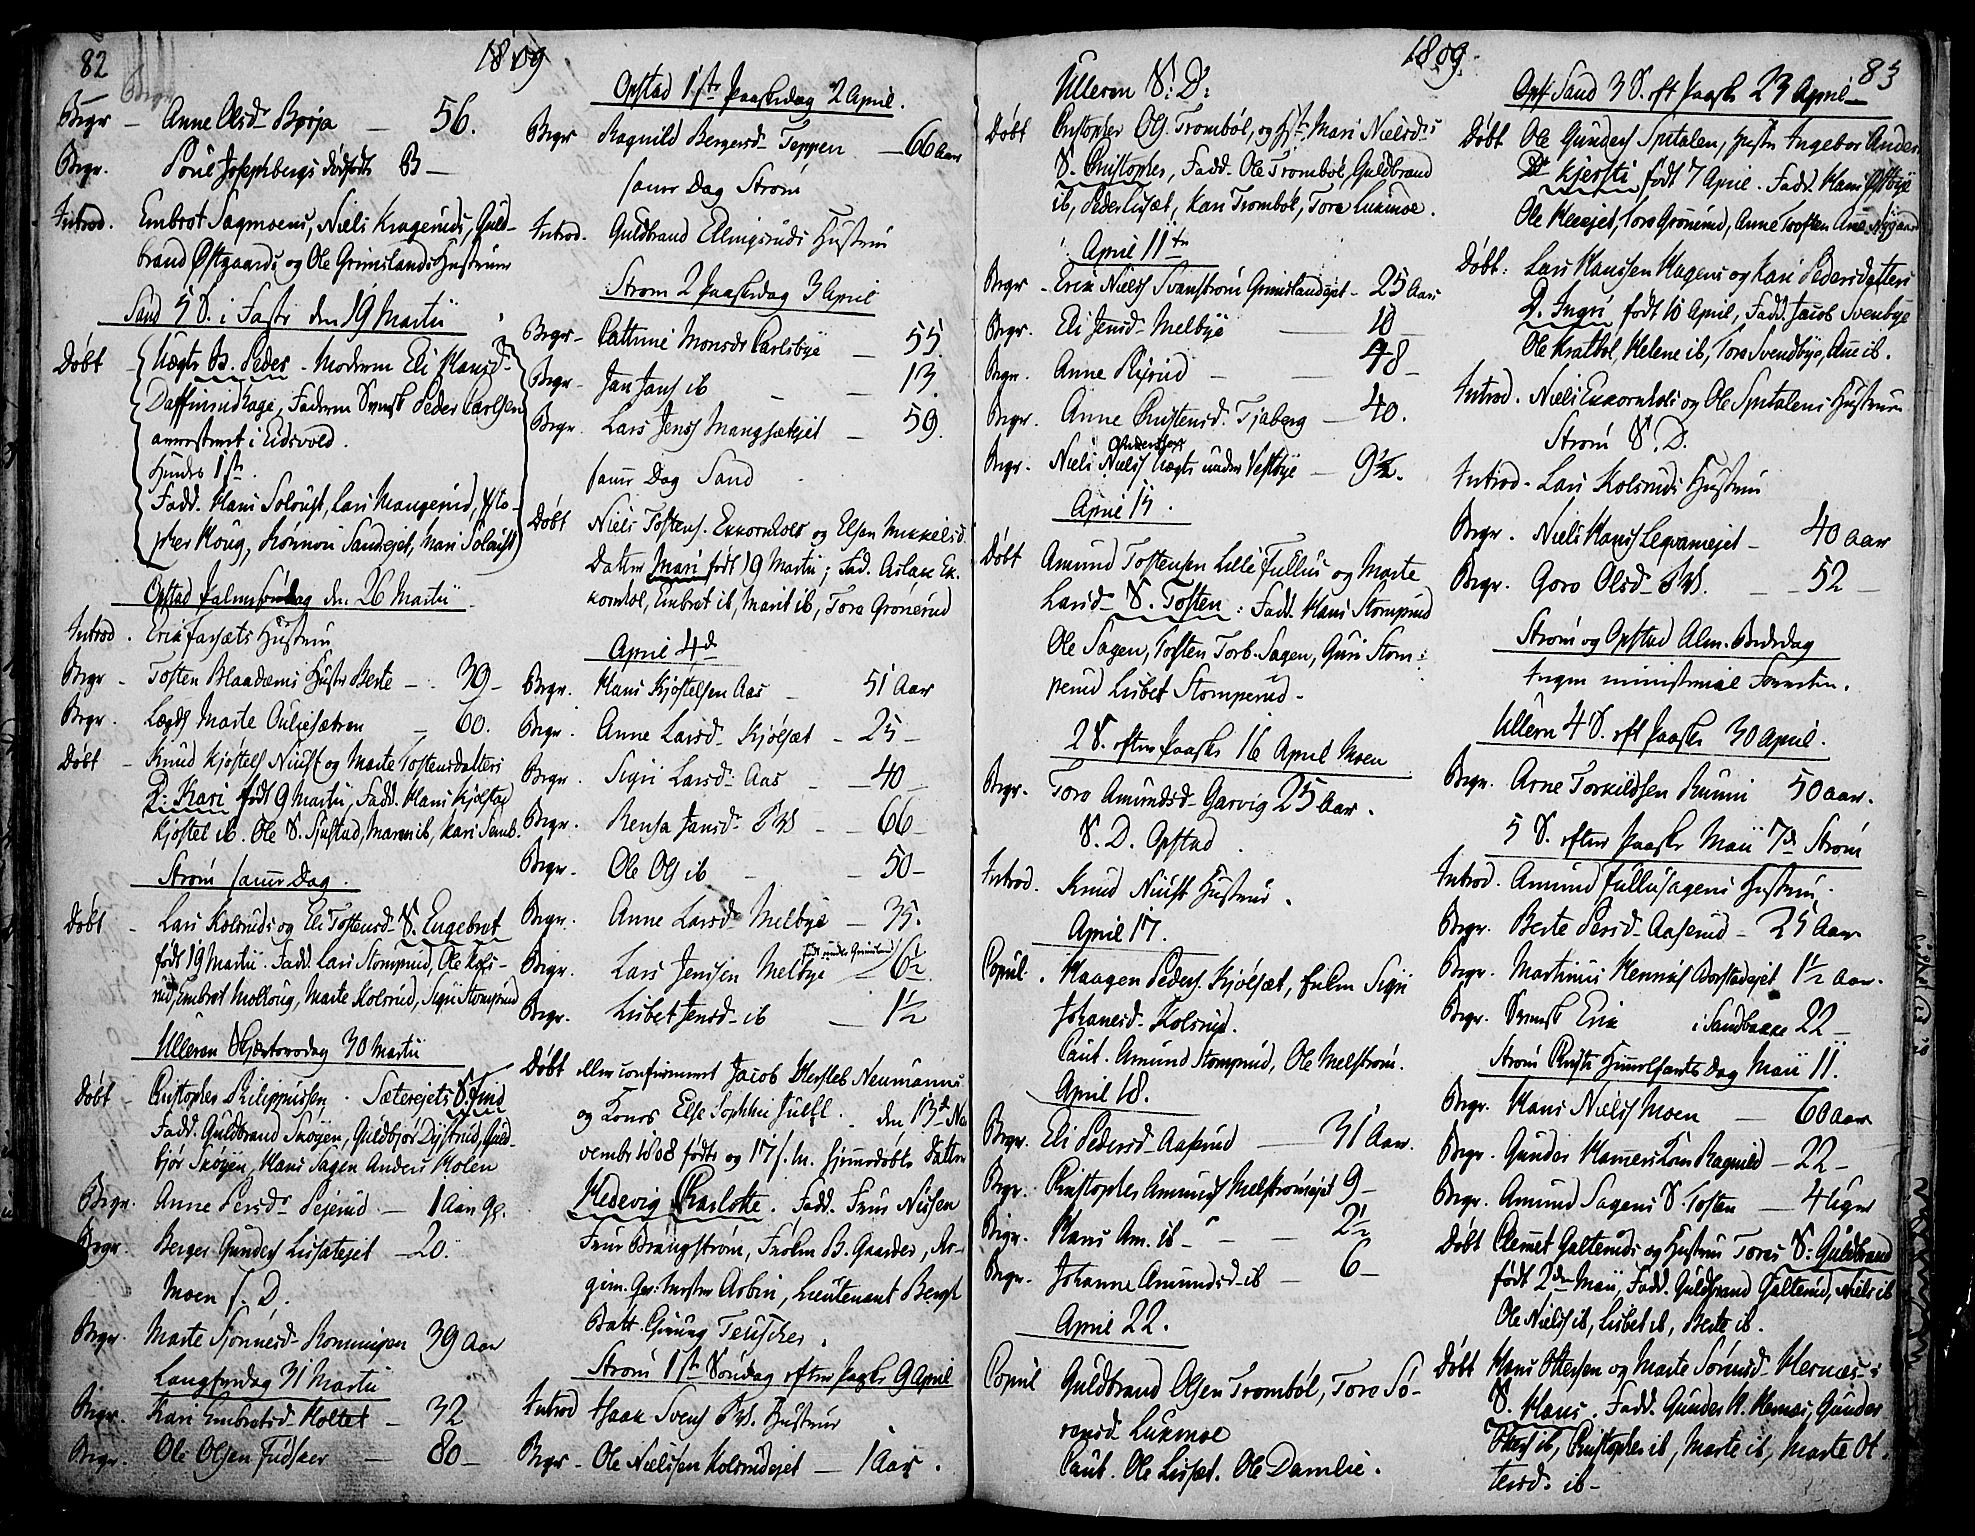 82
1809
Begr – Anne Olsd. Børja – 56.
Begr. Povel Josephbergs dødfødt B –
Introd. Embret Sagmoens, Niels Kragerud, Guld-
brand Østgaards og Ole Grimslands Hustruer
Sand 5 S. i Faste den 19 Martii
Døbt – Uægte B. Peder – Moderen Eli Hansd.
Faderen Svensk Peder Carlsen
arresteret i Eidsvold.
Hendes 1ste
Fadd. Hans Solbust, Lars Mangerud, Xsto-
pher Houg, Rønnou Sandeiet, Mari Solbust
Opstad Palmesøndag den 26 Martii
Introd. Erik Farsæts Hustru
Begr – Tosten Hustr Berte – 39 –
Begr. Lægd Marte – 60.
Døbt – Knud Kjøstels Niust og Marte Tostensdatters
D: Kari født 9 Martii, Fadd. Hans Kjølstad
Kjøstel ib. Ole S. Sjustad, Maren ib, Kari Semb.
Strøm samme Dag
Døbt – Lars Kolsruds og Eli Tostensd. S. Engebret
født 19 Martii. Fadd. Lars Stomprud, Ole Kols-
rud, Embret Molloug, Marte Kolsrud, Sigri Stomprud
Ulleren Skjertorsdag 30 Martii
Døbt – Christopher Philippussen Sætereiets S. Find
Fadd. Guldbrand Skøyen, Guldbjør Dystrud, Guld-
bjør Skøyen, Hans Sagen Anders Holen
Begr. Anne Persd. Pejerud – 1 Aar gl.
Begr. Berger Gunders Lisæteiet – 20.
Moen S. D.
Begr. Marte Siønnesd. Rommingen 39 Aar
Langfredag 31 Martii
Begr. Kari Embretsd. Holtet – 32
Begr. Ole Olsen Fudsaer – 80 –
Opstad 1ste Paaskedag 2 April.
Begr Ragnild Bergersd. Teppen – 66 Aar
samme Dag Strøm
Introd. Guldbrand Ellingsruds Hustru
Strøm 2 Paaskedag 3 April
Begr – Cathrine Monsdr Carlsbye – 55.
Begr – Jan Jans ib – 13.
Begr. Lars Jens Mangsæteiet – 59.
samme Dag Sand
Døbt Niels Tostens. Ekkornhols og Elsen Mikkelsd.
Datter Mari født 19 Martii; Fad. Aslak Ek-
kornhol, Embret ib, Marit ib, Tora Grønerud
April 4de
Begr. Hans Kjøstelsen Aas – 51 Aar
Begr. Anne Larsd. Kjølsæt – 25 –
Begr. Sigri Larsd. Aas – 40 –
Begr. Rensa Jansd. – 66 –
Begr. Ole Ols ib – 50 –
Begr. Anne Larsd. Melbye – 35.
Begr. Lars Jensen Melbye født under Grimsland 6½
Begr. Lisbet Jensd. ib – 1½
Døbt eller confirmeret Jacob Hersleb Neumanns
og Kones Else Sophie Juell. den 13de No-
vembr 1808 fødte og 17 s. M. hjemmedøbte Datter
Hedevig Charlotte. Fadd. Frue Nissen
Frue Brangstrøm, Frøken B. Gaarder, Re-
gim. Qv: mester Arbin, Lieutenant Bergh
Batt. Chirurg Teuscher.
Strøm 1ste Søndag efter Paaske 9 April
Introd Isaak Svens Hustrue
Begr – Ole Nielssen Kolsrudeiet – 1 Aar.
1809.
83
Ulleren S: D:
Døbt Christopher Ols. Trombøl, og Hstr Mari Nielsdrs
S. Christopher, Fadd. Ole Trombøl, Guldbrand
ib, Peder Lisæt, Kari Trombøl, Tora Lukmoe.
April 11te
Begr – Erik Niels Svanstrøm Grimslandeiet – 25 Aar
Begr. Eli Jensd. Melbye – 10 –
Begr. Anne Risrud – 48 –
Begr. Anne Christensd. Tjaberg – 40.
Begr. Niels Niels Uægte under Vestbye – 9½.
April 15.
Døbt Amund Tostensen Lille Fullus og Marte
Larsd. S. Tosten: Fadd. Hans Stomprud
Ole Sagen, Tosten Torb. Sagen, Guri Stom-
perud Lisbet Stomperud –
2 S. efter Paaske 16 April Moen
Begr. Tore Amundsd. Garvig 25 Aar.
S. D. Opstad
Introd. Knud Niust Hustrue.
April 17.
Copul. Haagen Peders. Kjølsæt, Enken Sigri
Johanesd. Kolsrud.
Caut. Amund Stomprud, Ole Melstrøm.
April 18.
Begr. Eli Pedersd. Aaserud – 31 Aar.
Begr. Christopher Amunds Melstrømeiet 9 –
Begr. Hans Am. ib – 2½
Begr. Johanne Amundsd. ib – 6 –
April 22.
Copul Guldbrand Olsen Trombøl, Tore Sø-
rensd Lukmoe
Caut. Ole Lisæt. Ole Damlie.
Opst Sand 3 S. eft Paaske 23 April
Døbt Ole Gunders Spitalen, Hustr Ingebor Anders
Dr Kjersti født 7 April. Fadd. Hans Østbye
Ole Heseiet, Tora Grønerud, Anne Trosten Anne Nygaard
Døbt: Lars Hanssen Hagens og Kari Pedersdatters
D. Ingri, født 10 April, Fadd. Jacob Svenbye
Ole Kratbøl, Helene ib, Tora Svendbye, Ane ib.
Introd. Niels Ekkornhols og Ole Spitalens Hustruer
Strøm S. D.
Introd – Lars Kolsruds Hustrue
Begr. Niels Hans – 40 Aar
Begr. Goro Olsd. – 52 –
Strøm og Opstad Alm. Bededag
Ingen ministerial Forretn.
Ullern 4 S. eft Paaske 30 April.
Begr. Arne Torkildsen Runni 50 Aar.
5 S. efter Paaske Maii 7de Strøm
Introd. Amund Fullusagens Hustrue.
Begr. Berte Persd. Aaserud – 25 Aar
Begr. Martinus Hennis 1½ Aar.
Begr. Svensk Erik i Sandbakke 22 –
Strøm Christi Himmelfarts Dag Maii 11.
Begr. Hans Niels Moen – 60 Aar
Begr. Gunder Hamers Kone Ragnild – 22 –
Begr. Amund Sagens S. Tosten – 4 Uger
Døbt Clemet Galteruds og Hustrue Toras S: Guldbrand
født 2den Maii, Fadd. Guldbrand Galterud, Niels ib
Ole Niels ib, Lisbet ib, Berte ib.
Døbt Hans Ottersen og Marte Sørensd. Hernæs –
S. Hans. Fadd. Gunder H. Hernæs, Gunder
Otters ib, Christopher ib, Marte ib, Marte Ot-
tersd. ib –